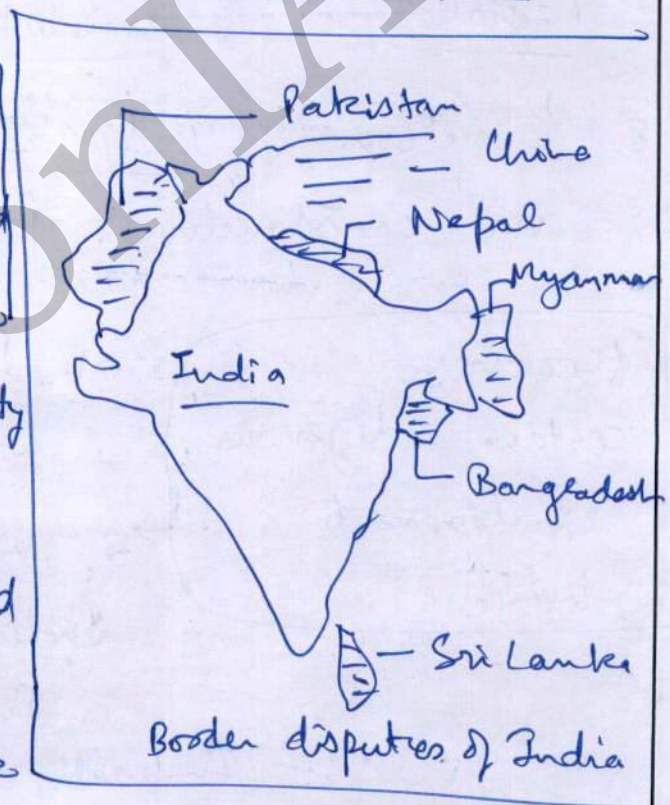 Pakistan
China
Nepal
Myanmar
India
Bangladesh
Sri Lanka
Border disputes of India